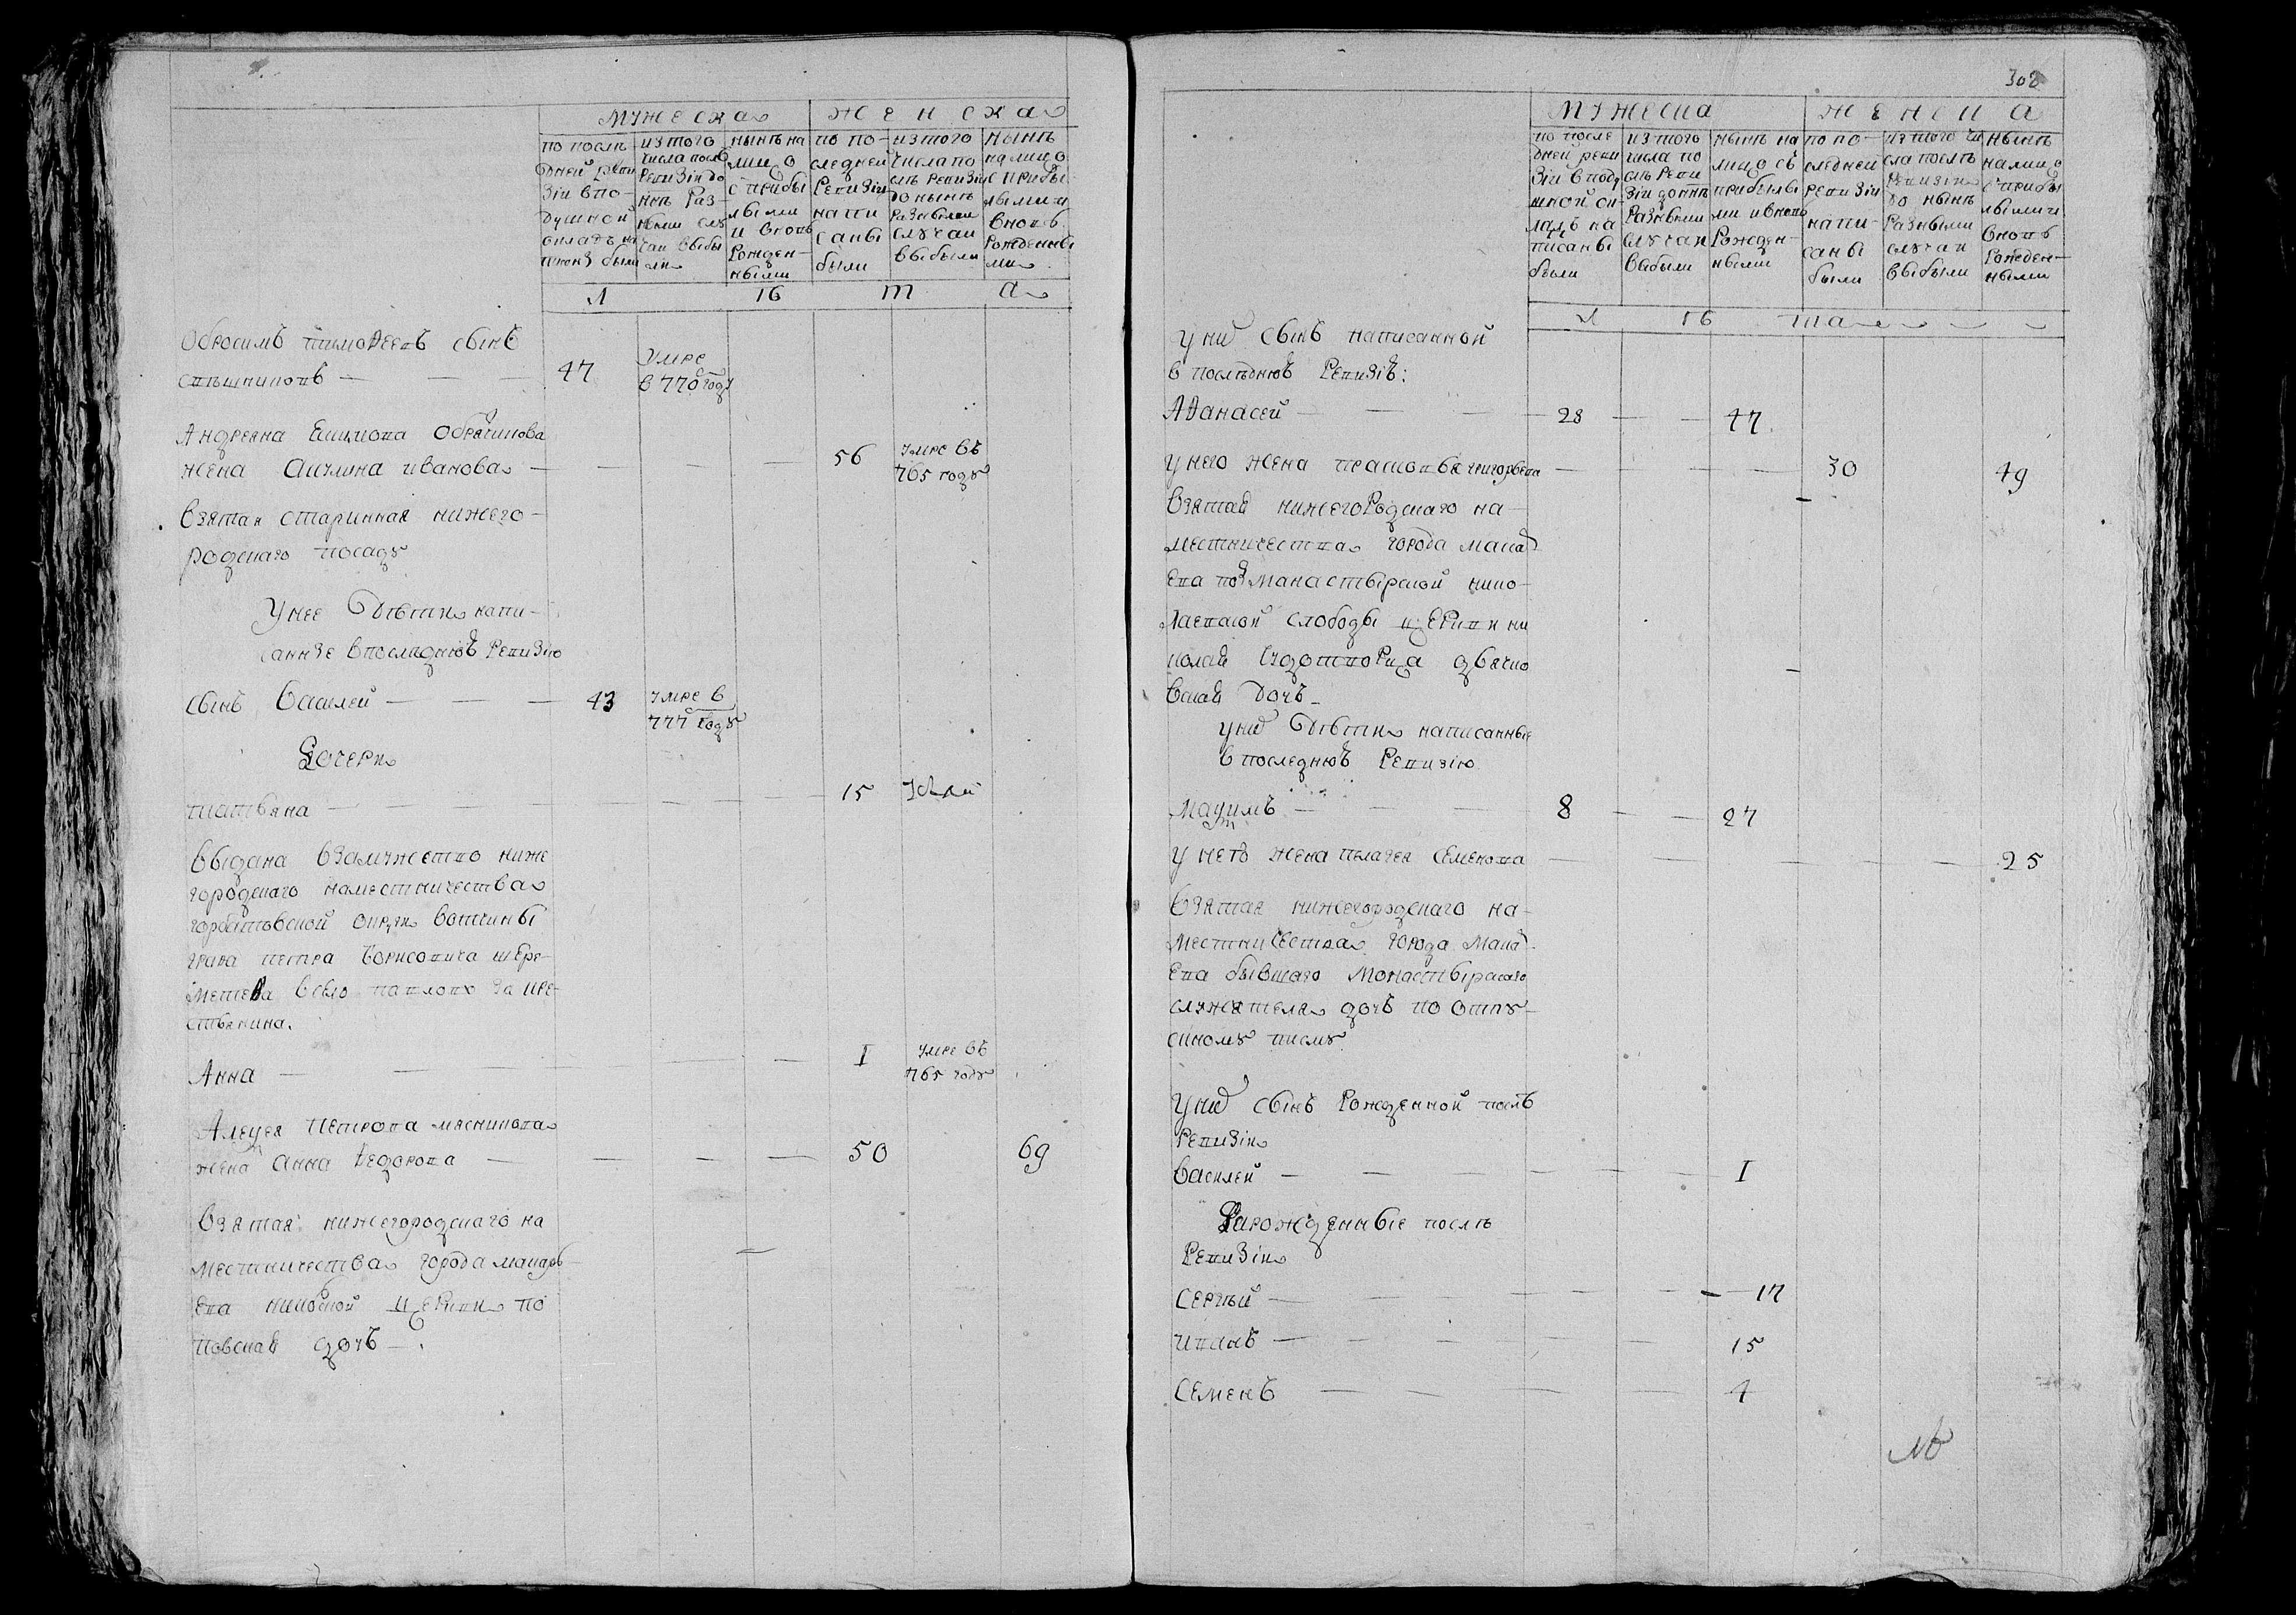 Мужеска Женска
по послѣ
дней реви
зіи в по
душной
окладъ на
писаны были
из того
числа послѣ
Ревизіи до
нынѣ раз
ными слу
чаи выбы
ли
нынѣ на
лицо
с прибы
лыми
и вновь
Рожден
ными
по по-
следней
Ревизіи
напи
саны
были
из того
числа по
слѣ Ревизіи
до нынѣ
Разными
случаи
выбыли
нынѣ
налицо
с прибы
лыми и
вновь
Рожденны
ми
Л ѣ т а
Обросимъ тимофеевъ сынъ
47 умре
в 770 году
Андреяна
жена Акулина иванова 56 умре въ
765 году
Взятая старинная нижего-
родскаго посаду
У нее дѣти напи-
санные в последнюю Ревизию
сынъ Василей 43 умре в
777 году
Дочери
татьяна 15
выдана взамужество ниже
городскаго наместничества
горбатовской округи вотчины
графа петра борисовича шере-
метева в село павлово за кре-
стьянина.
Анна 1 умре въ
765 году
Алексея Петрова мясникова
жена Анна Федорова 50 69
Взятая нижегородскаго на
местничества города макарь
ева церкви по
повская дочь
308
Мужеска Женска
по после
дней реви
зіи в поду
шной ок
ладъ на
писаны
были
из того
числа по
слѣ Реви
зіи донынѣ
Разными
случаи
выбыли
нынѣ на
лицо съ
прибылы
ми и вновь
Рожден-
ными
по по-
следней
ревизіи
напи-
саны
были
из того чи
сла послѣ
Ревизіи
до нынѣ
Разными
случаи
выбыли
нынѣ
налицо
с прибы
лыми и
вновь
Рожден-
ными
Л ѣ та
У ней сынъ написанной
в последнюю Ревизію:
Афанасей 28 47
У него жена прасковья григорьева 30 49
Взятая нижегородскаго на-
местничества города макарь
ева под манастырской нико-
лаевской слободы церкви ни
колая чудотворца дьячко
вская дочь
У них дѣти написанные
в последнюю Ревизію
Мак<sup></sup>симъ 8 27
У него жена пелагея Семенова 25
Взятая нижегородскаго на-
местничества города Макарь
ева бывшаго Монастырскаго
служителя дочь по отпу-
скному писму
У них сынъ Рожденной послѣ
Ревизіи
Василей 1
Рожденные послѣ
Ревизіи
Сергѣй 17
Иванъ 15
Семенъ 4